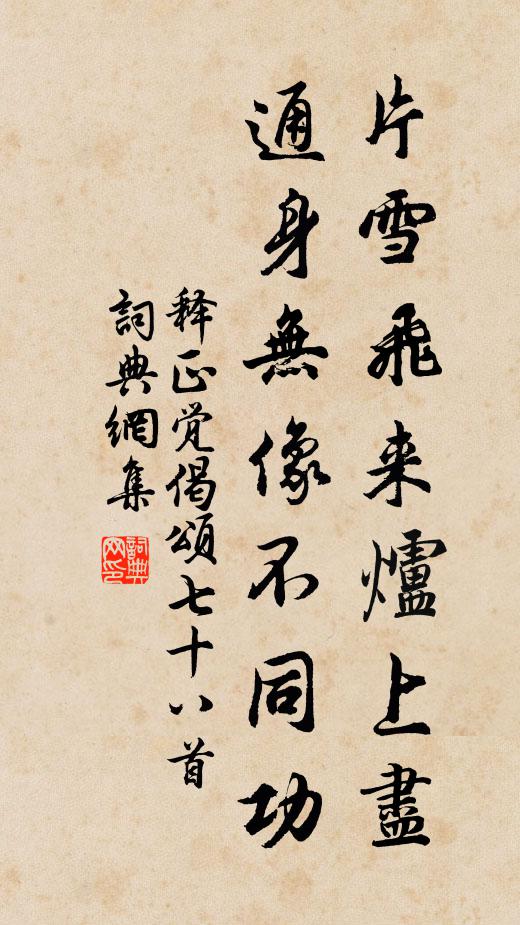 片雪飛来爐上盡
通身無像不同功
释正覚偈頌七十八首
詞典網集
詞典网印